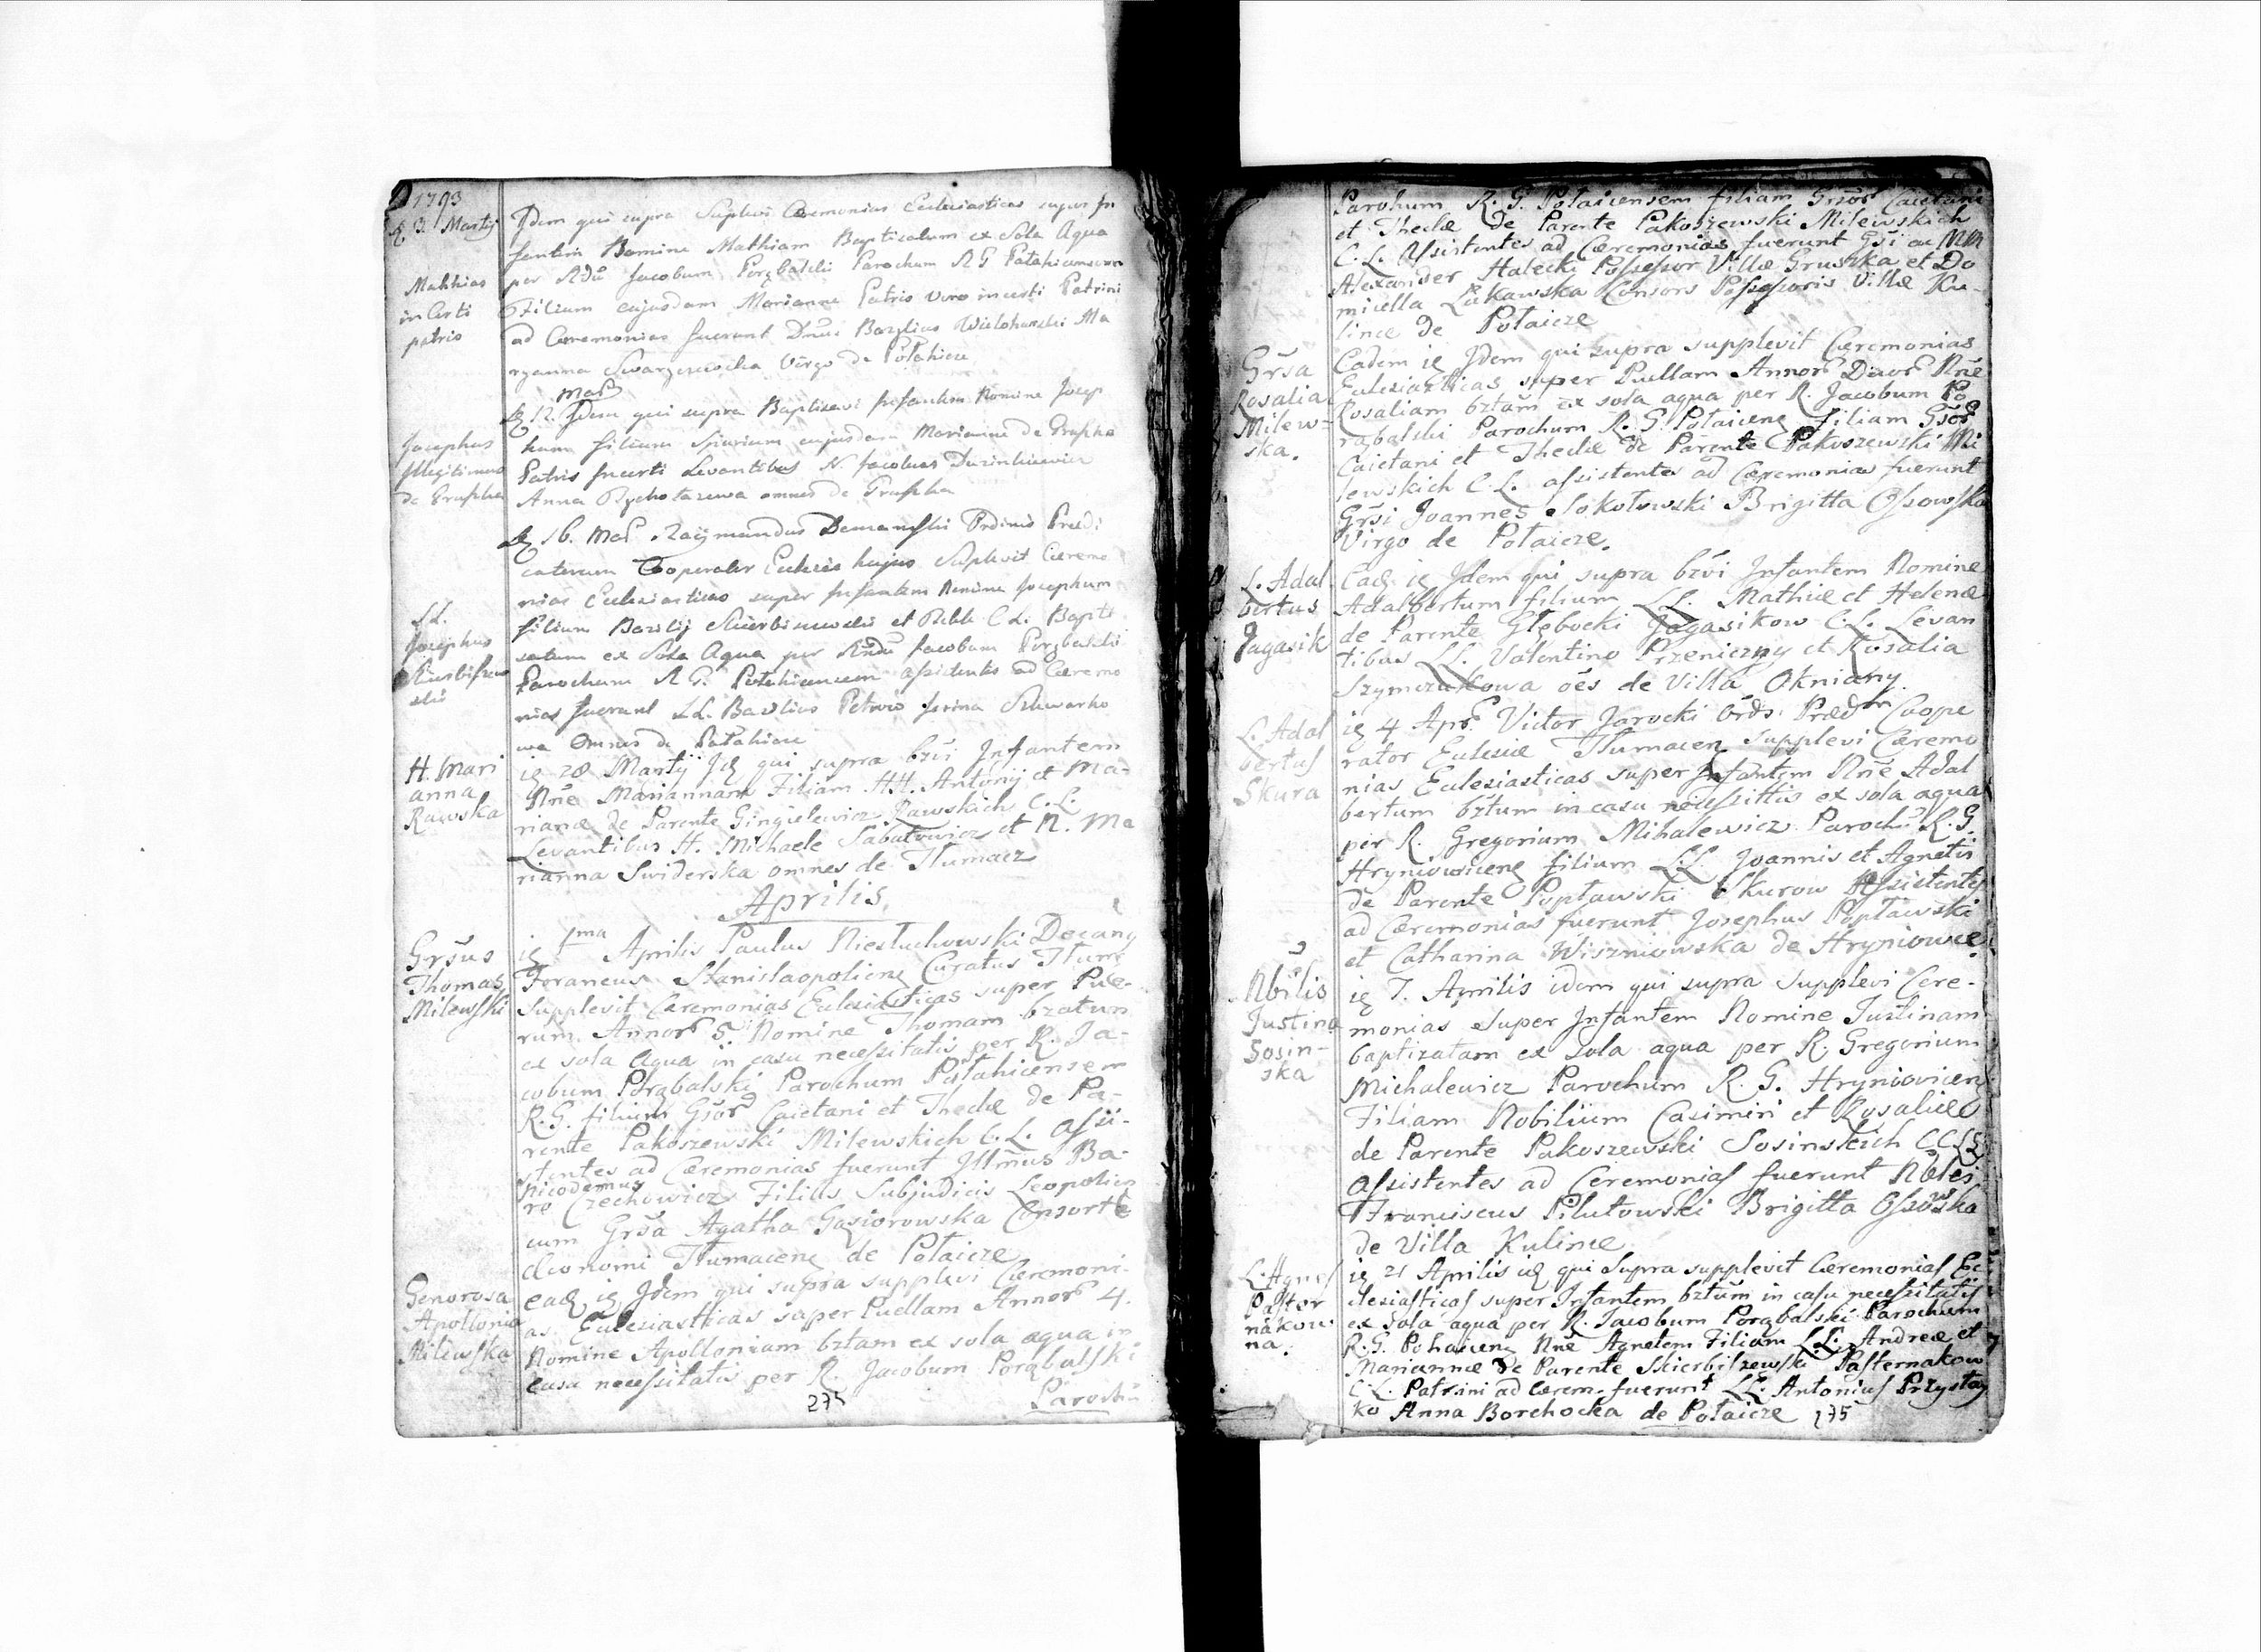 1793
3 Martij
Idem qui supra Suplevi Ceremonias Ecclesiasticas super In
fantem Nomine Mathiam Baptisatum ex Sola Aqua
Mathias
per Rdu Jacobum Porąbalski Parochum R G Potahicensem
in Certi
Filium cujusdam Marianna Patris vero incerti Patrini
patris
ad Ceremonias fuerunt Dnus Bazylius Wielohurski Ma
ryanna Swarzeszewska Virgo de Potahicze
Mar
12. Idem qui supra Baptisavi Infantem Nomine Josep
Josephus
hum filium Spurium cujusdam Marianna de Gruszka
Illegitimus
Patris Incerti Levantibus N. Jacobus
de Gruszka
Anna omnes de Gruszka
16. Mar Raijmundus Demanski Ordinis Predi
catorum Cooperator Ecclesie hujus Suplevit Cæremo
nias Ecclesiasticas super Infantem Nomine Josephum
LL.
filium Bazilij et C. L. Bapti
Josephus
satum ex Sola Aqua per Rndu Jacobum Porąbalski
Parochum R G. Potahicensem assistentes ad Cæremo
nias fuerunt LL. Basilius
omnes de Potahicze
H. Mari
28 Martij qui supra bzvi Infantem
anna
Nne Mariannam Filiam HH. Antonij et Ma-
Rawska
rianæ de Parente Gingielewicz Rawskich C. L.
Levantibus H. Michaele Sabatowicz et N. Ma
rianna Swiderska omnes de Tłumacz
Aprilis
Grsus
1ma Aprilis Paulus Niestuchowski Decang
Thomas
Foraneus Stanislaopoliens Curatus Tłum
Milewski
Supplevit Ceremonias Ecclesiasticas super Pue-
rum Annor 5. Nomine Thomam bzatum
ex sola aqua in casu necessitatis per R. Ja-
cobum Porąbalski Parochum Potahicensem
R.G. filium Gsor Caietani et Theclæ de Pa-
rente Pakoszewski Milewskich C. L. Assi-
stentes ad Cæremonias fuerunt Illmus Ba-
Nicodemus
ro Czechowicz Filius Subjudicis Leopolien
cum Grsa Agatha Gąsiorowska Consorte
Œconomi Tłumacens de Potaicze
Generosa
ead Idem qui supra supplevi Cæremoni-
Apollonia
as Ecclesiasticas super Puellam Annor 4.
Milewska
Nomine Apolloniam bztam ex sola aqua in
casu necessitatis per R. Jacobum Porąbalski
275
Parochu
Parohum R. G. Potaicensem filiam Grsor Caietani
et Theclæ de Parente Pakoszewski Milewskich
C. L. Assistentes ad Cæremonias fuerunt Gsi ac MM
Alexander Halecki Possessor Villæ Gruszka et Do
micella Łukawska Consors Possessoris Villæ Ku-
lince de Potaicze
Grsa
Eadem Idem qui supra supplevit Cæremonias
Rosalia
Ecclesiasticas super Puellam Annor Duor Nne
Milew-
Rosaliam bztam ex sola aqua per R. Jacobum Po
ska.
rąbalski Parochum R. G. Potaicens filiam Gsor
Caietani et Theclæ de Parente Pakoszewski Mi
lewskich C. L. assistentes ad Cæremonias fuerunt
Grsi Joannes Sokołowski Brigitta Ossowska
Virgo de Potaicze.
L. Adal
Ead Idem qui supra bzvi Infantem Nomine
bertus
Adalbertum filium LL. Mathiæ et Helenæ
Jagasik
de Parente Głębocki Jagasikow C. L. Levan
tibus LL. Valentino Przeniczny et Rosalia
Szymczukowa oes de Villa Okniany.
L. Adal
4 Apr Victor Jarocki Ords Præd Coope
bertus
rator Ecclesiæ Tłumacens supplevi Cæremo
Skura
nias Ecclesiasticas super Infantem Nne Adal
bertum bztum in casu necessittis ex sola aqua
per R. Gregorium Mihalewicz Paroch R. G.
Hryniowicens filium LL. Joannis et Agnetis
de Parente Popławski Skurow Assistentes
ad Cæremonias fuerunt Josephus Popławski
et Catharina Wiszniowska de Hryniowce.
Nbilis
7. Aprilis idem qui supra Supplevi Cere-
Justina
monias super Infantem Nomine Justinam
Sosin-
baptizatam ex sola aqua per R. Gregorium
ska
Michalewicz Parochum R. G. Hryniovicens
Filiam Nobilium Casimiri et Rosaliæ
de Parente Pakoszewski Sosinskich
Assistentes ad Ceremonias fuerunt Nbles
Franciscus Pilutowski Brigitta Ossowska
de Villa Kulince
L: Agnes
21 Aprilis qui supra supplevit Cæremonias Ec
Paster
clesiasticas super Infantem bztum in casu necessitatis
nakow
ex sola aqua per R. Jacobum Porąbalski Parochum
na.
R. G. Pohaicens Nne Agnetem Filiam LL. Andreæ et
Mariannæ de Parente Skierbiszewski Pasternakow
C. L. Patrini ad Cærem. fuerunt LL. Antonius Przystay
ko Anna Borchocka de Potaicze 275